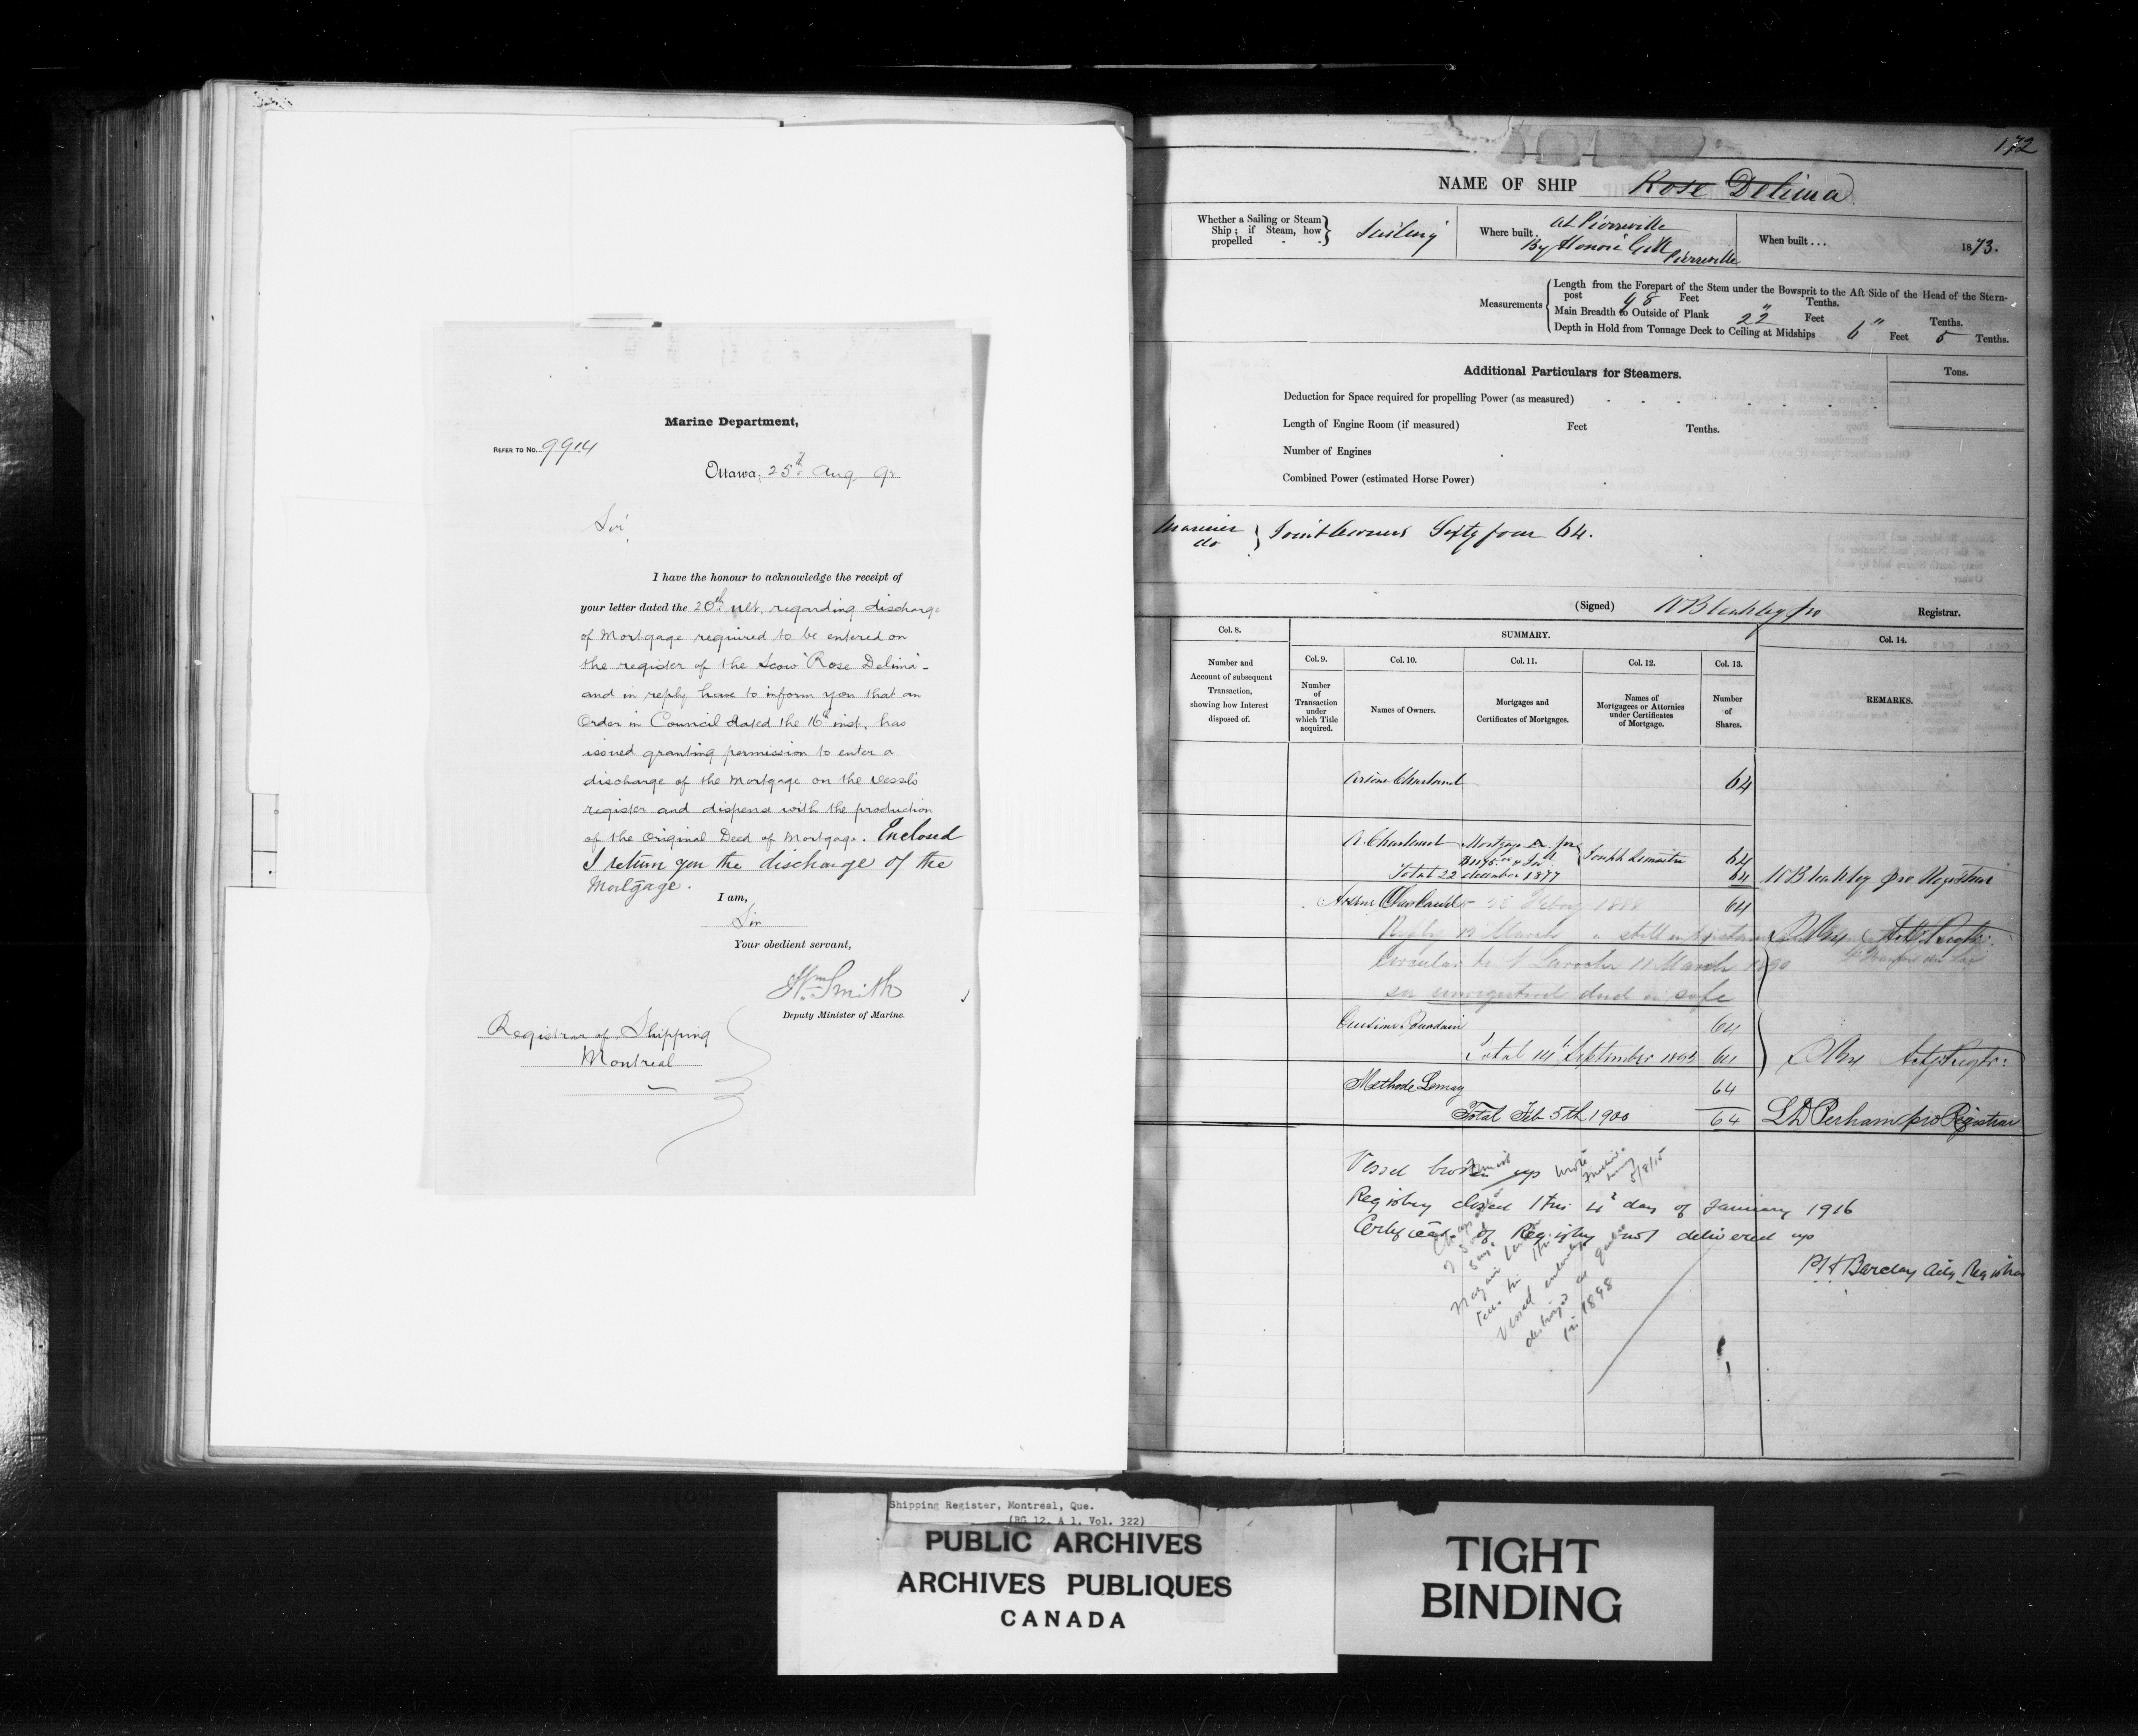 Marine Department,
REFER TO No. 9914
Ottawa, 25th Aug 9
Sir,
I have the honour to acknowledge the receipt of
your letter dated the 20th ult. regarding discharge
of Mortgage required to be entered on
the register of the Scow "Rose Delima"-
and in reply have to inform you that an
Order in Council dated the 16th inst. has
issued granting permission to enter a
discharge of the Mortgage on the vessels
register and dispense with the production
of the Original Deed of Mortgage. Enclosed
I return you the discharge of the
Mortgage.
I am,
Sir
Your obedient servant,
Wm Smith
Deputy Minister of Marine.
Registrar of Shipping
Montreal
172
NAME OF SHIP Rose Delima
Whether a Sailing or Steam Ship; if Steam, how propelled Sailing
Where built. At Pierreville
By Honoré Gill Pierreville
When built... 1873.
Measurements
Length from the Forepart of the Stem under the Bowsprit to the Aft Side of the Head of the Stern-
post 98 Feet " Tenths.
Main Breadth to Outside of Plank 22 Feet " Tenths.
Depth in Hold from Tonnage Deck to Ceiling at Midships 6 Feet 5 Tenths.
Additional Particulars for Steamers.
Tons.
Deduction for Space required for propelling Power (as measured)
Length of Engine Room (if measured) Feet Tenths.
Number of Engines
Combined Power (estimated Horse Power)
Mariner
do } Joint Owners Sixty four 64.
(Signed) pro Registrar.
Col. 8.
Number and Account of subsequent Transaction, showing how Interest disposed of.
SUMMARY.
Col. 9.
Number of Transaction under which Title acquired.
Col. 10.
Names of Owners.
Col. 11.
Mortgages and Certificates of Mortgages.
Col. 12.
Names of Mortgagees or Attornies under Certificates of Mortgage.
Col. 13.
Number of Shares.
Col. 14.
REMARKS.
Arsène Charland 64
A Charland Mortgage for Joseph Lemaitre 64
Total 22 december 1877 64 pro Registrar
Arsène Charland - 1888 64
Reply 12 March " still in existence
Circular to Laroche 11 March 1890
see unregistered deed in safe
64
Total 14 September 1892 64 Actg Regtr:
Methode Lemay 64
Total Feb 5th 1900 64 L D Perham pro Registrar
Vessel broken up
Registry closed this 4th day of January 1916
Certificate of Registry not delivered up
Barclay Actg. Registrar
5/8/15
Vessel entirely
destroyed at
in 1898
Shipping Register, Montreal, Que.
(RG 12, A 1, Vol. 322)
PUBLIC ARCHIVES
ARCHIVES PUBLIQUES
CANADA
TIGHT
BINDING